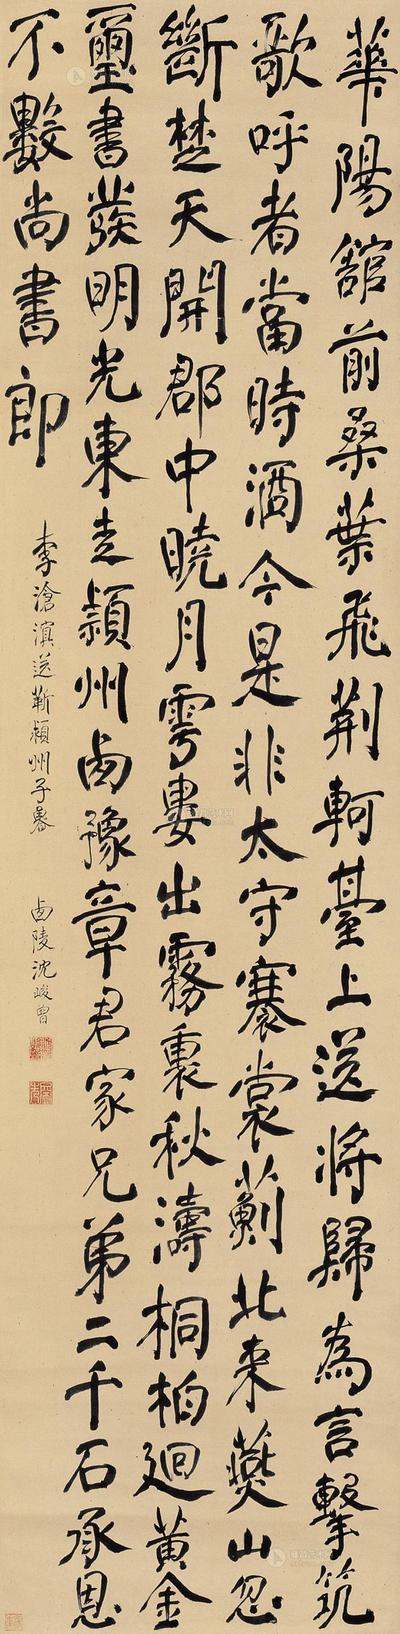 華陽館前桑葉飛荊軻臺上送將歸為言擊筑
歌呼者當時酒今是非太守褰裳薊北來燕山忽
斷楚天開郡中曉月雩婁出霧裏秋濤桐柏廻黃金
璽書發明光東走潁州西豫章君家兄弟二千石承恩
不數尚書郎
李滄溟送靳潁州子魯
西陵沈峻曾